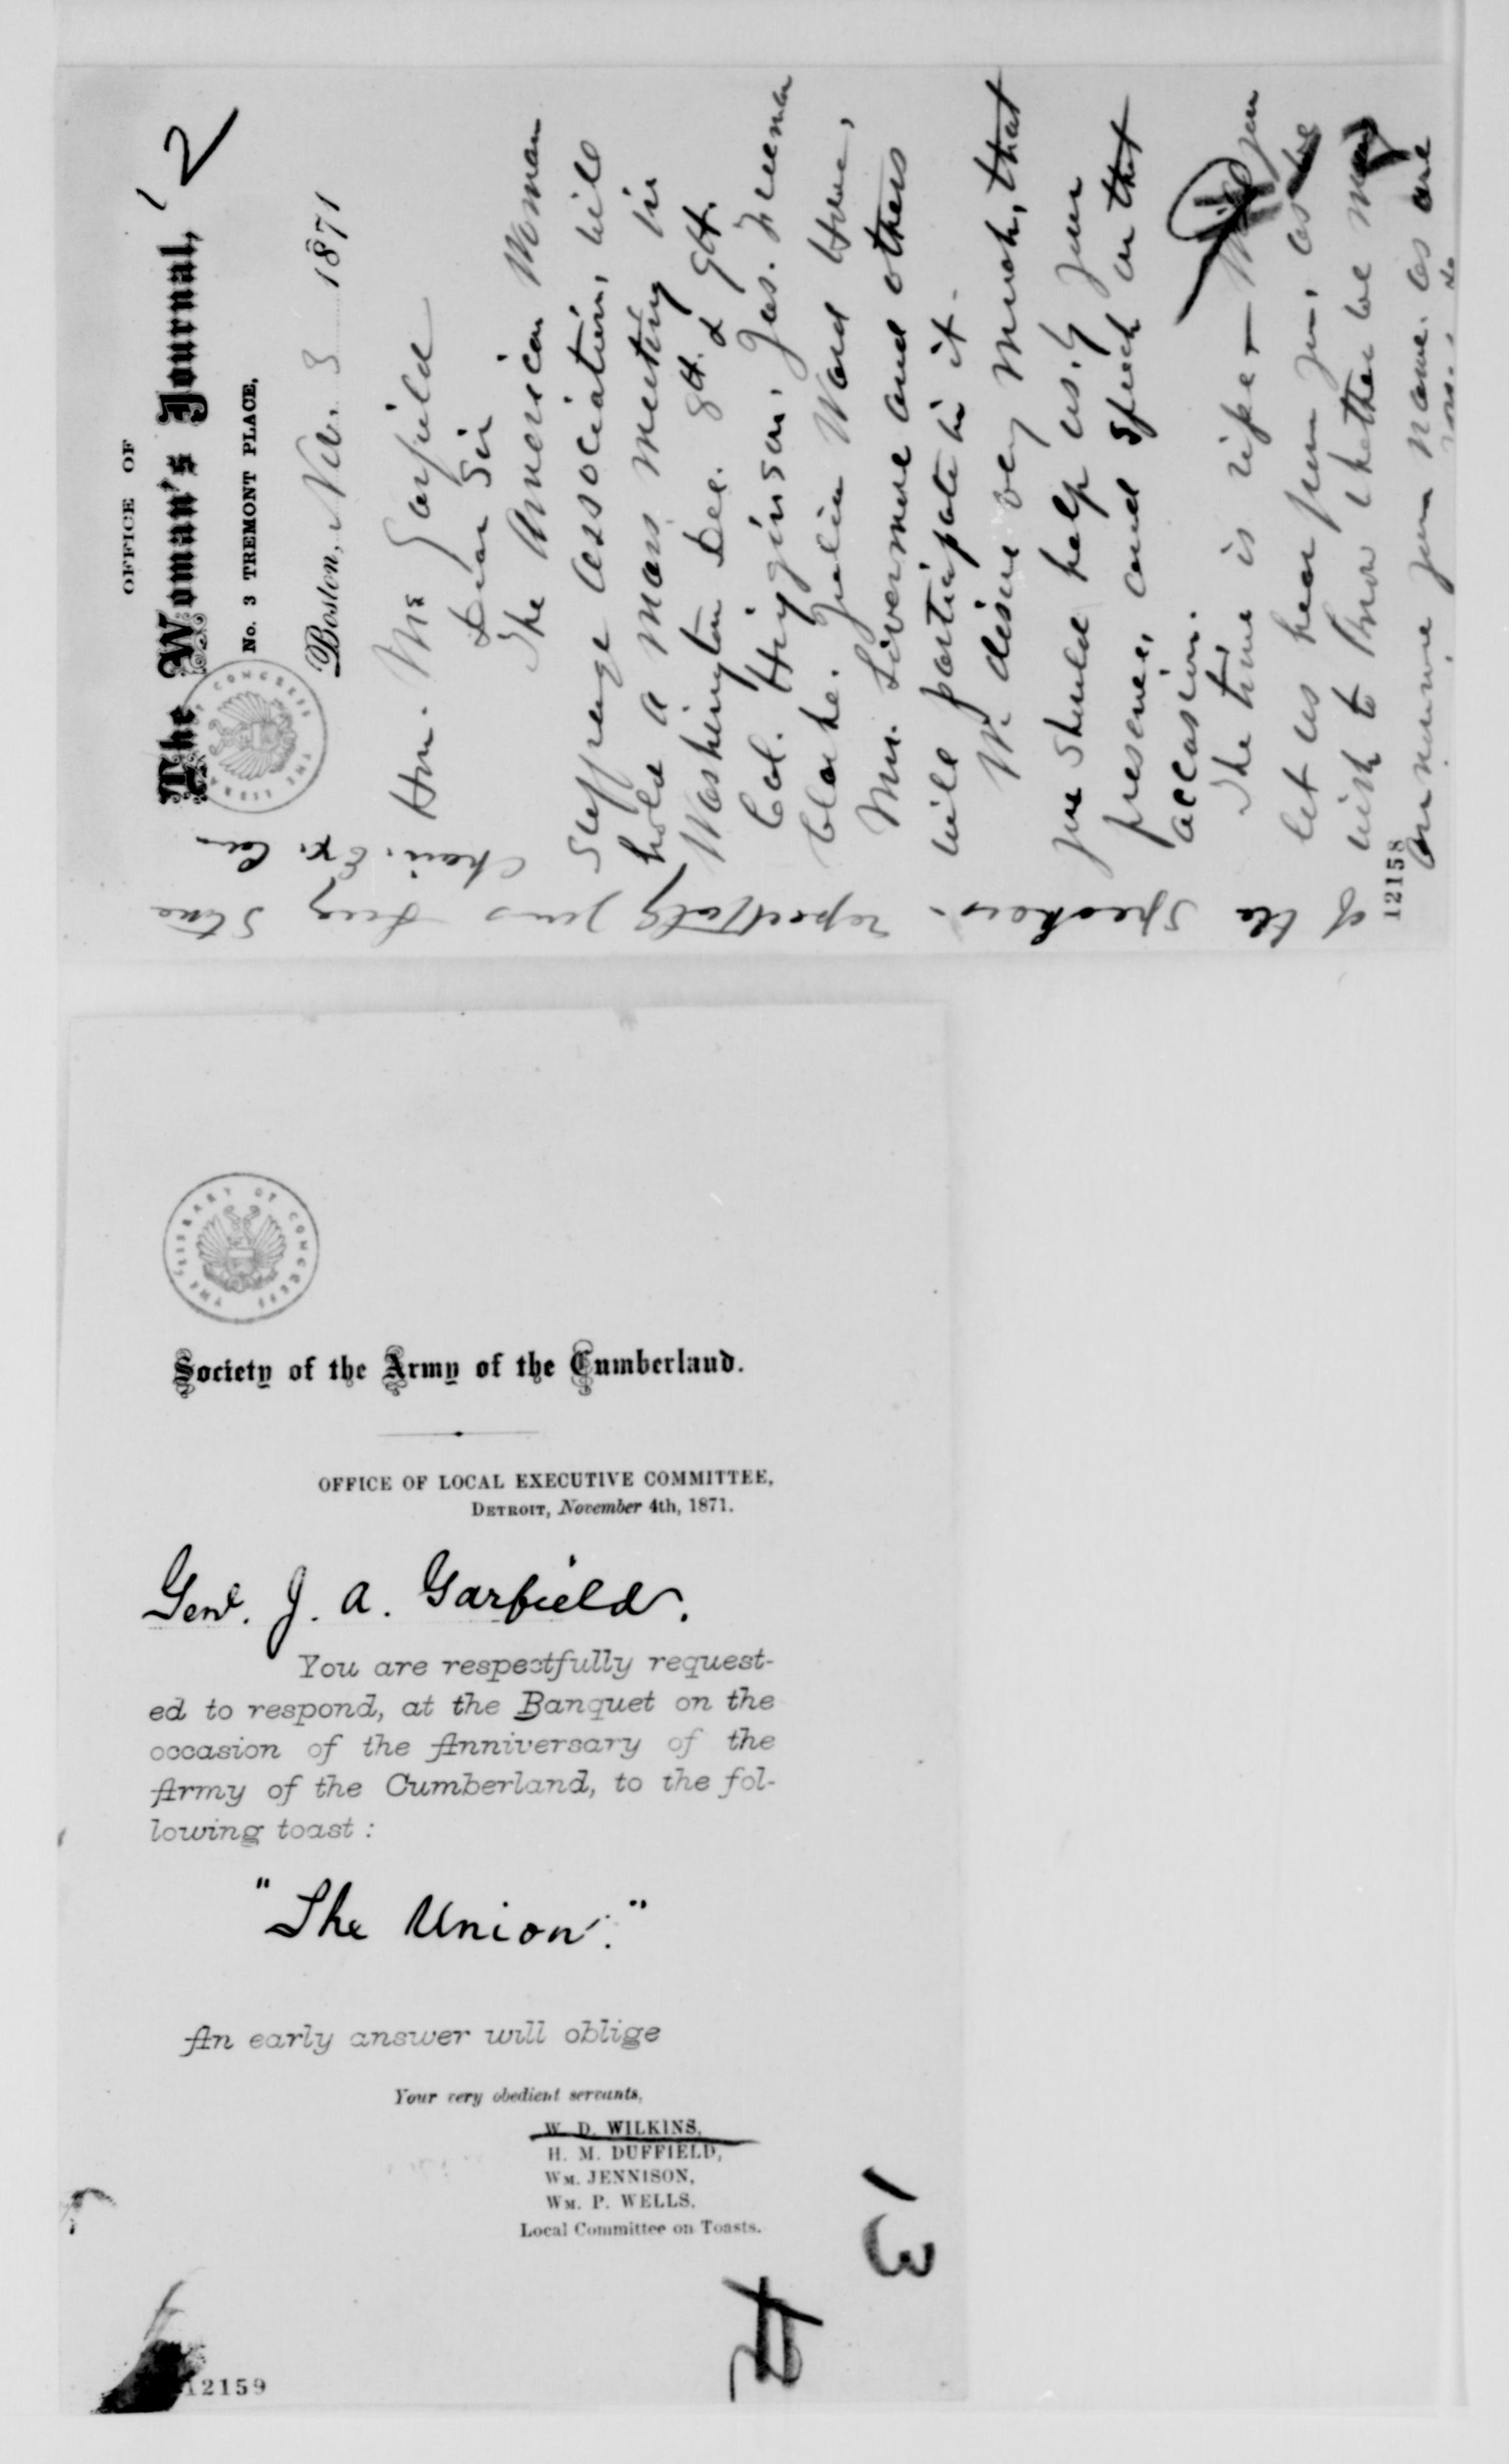 OFFICE OF
The Woman's Journal,
No. 3 TREMONT PLACE,
Boston, Nov. 3 1871
2
THE LIBRARY OF CONGRESS
Hon. Mr Garfield
Dear Sir
The American Woman
Suffrage Association, will
hold a mass meeting in
Washington Dec. 8th. & 9th.
Col. Higginson, Jas. Freeman
Clarke, Julia Ward Howe,
Mrs. Livermore and others
will participate in it.
We desire very much, that
you should help us, by your
presence, and speech on that
occasion.
The time is ripe — Will you
let us hear from you, as we
wish to know whether we may
announce your name as one
of the speakers.
respectfully yours Lucy Stone
Chair. Ex. Com
12158
THE LIBRARY OF CONGRESS
Society of the Army of the Cumberland.
OFFICE OF LOCAL EXECUTIVE COMMITTEE,
DETROIT, November 4th, 1871.
Genl. J. A. Garfield.
You are respectfully request-
ed to respond, at the Banquet on the
occasion of the Anniversary of the
Army of the Cumberland, to the fol-
lowing toast:
"The Union."
An early answer will oblige
Your very obedient servants,
W. D. WILKINS,
H. M. DUFFIELD,
WM. JENNISON,
WM. P. WELLS,
Local Committee on Toasts.
13
12159